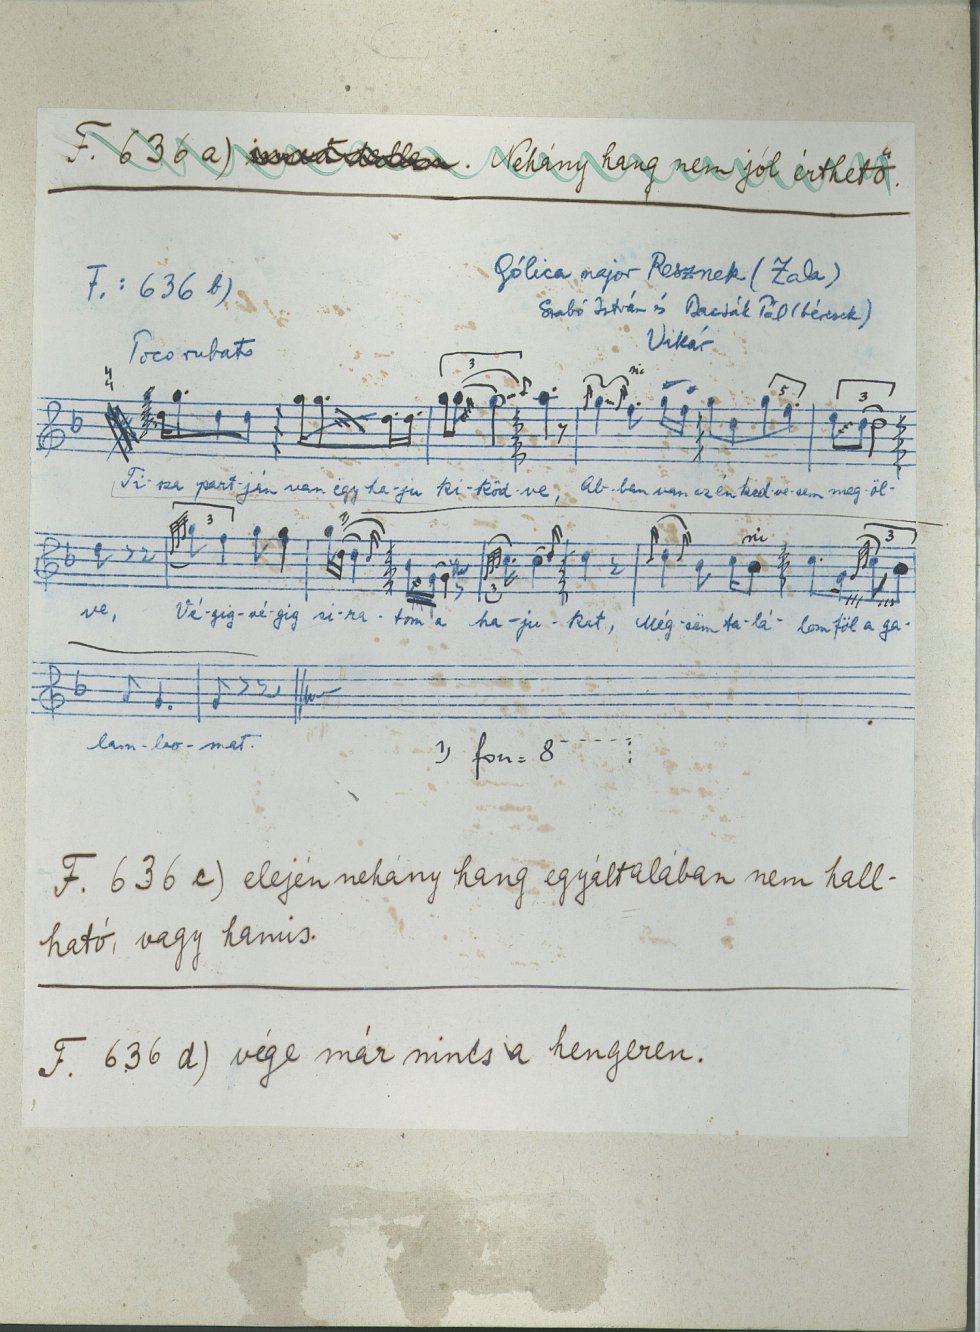 F. 636 a) . Nehány hang nem jól érthető.
F.: 636 b)
Gólica major Resznek (Zala)
Szabó István és Pál (béresek)
Vikár
Poco rubato
3
5
3
Ti-sza part-ján van egy ha-ju ki-köd-ve, Ab-ban van az én ked-ve-sem meg-öl-
3
1)
3
3
ve, Vé-gig-vé-gig si-ra-tom a ha-ju-kat, Még-sem ta-lá-lom föl a ga-
lam-bo-mat.
1) fon = 8
F. 636 c) elején nehány hang egyáltalában nem hall-
ható, vagy hamis.
F. 636 d) vége már nincs a hengeren.